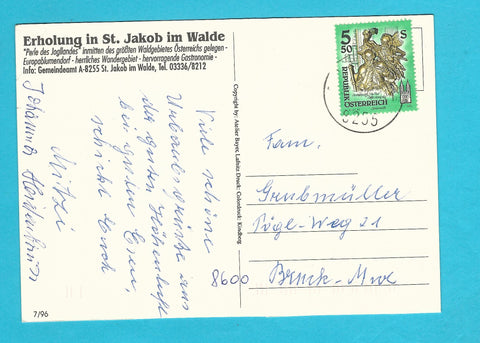 Erholung in St. Jakob im Walde
"Perle des Jogllandes" inmitten des größten Waldgebietes Österreichs gelegen -
Europablumendorf - herrliches Wandergebiet - hervorragende Gastronomie -
Info: Gemeindeamt A-8255 St. Jakob im Walde, Tel. 03336/8212
Viele schöne
Urlaubsgrüße aus
der guten Höhenluft
bei gutem Essen,
schickt Euch
Mitzi
Johanna
7/96
Copyright by: Atelier Bayer, Lafnitz Druck: Colordruck, Kindberg
5 50 S
REPUBLIK
ÖSTERREICH
8255
Fam.
Grubmüller
Pögl-Weg 21
8600 Bruck-Mur